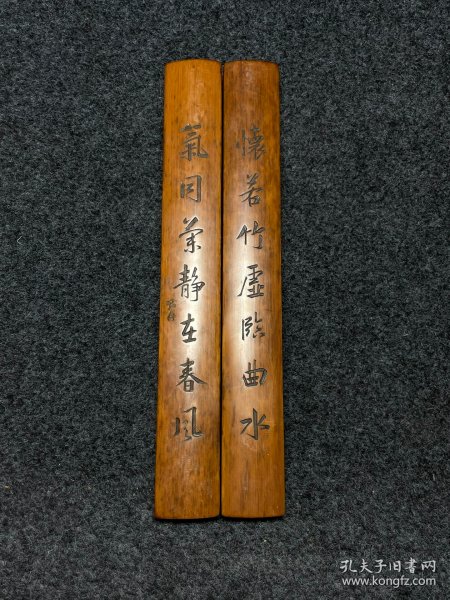 懷若竹虛臨曲水
氣同蘭靜在春風
孔夫子旧书网
www.kongfz.com